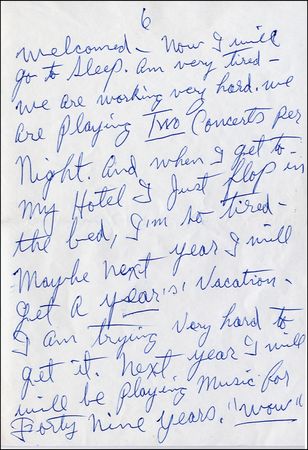 6
welcomed - Now I will
go to sleep. am very tired -
we are working very hard. we
are playing Two Concerts per
Night. And when I get to -
my Hotel I Just flop in
the bed, I'm so tired -
Maybe next year I will
get a year's, vacation -
I am trying very hard to
get it. Next year I will
will be playing music for
Forty Nine years. "Wow"